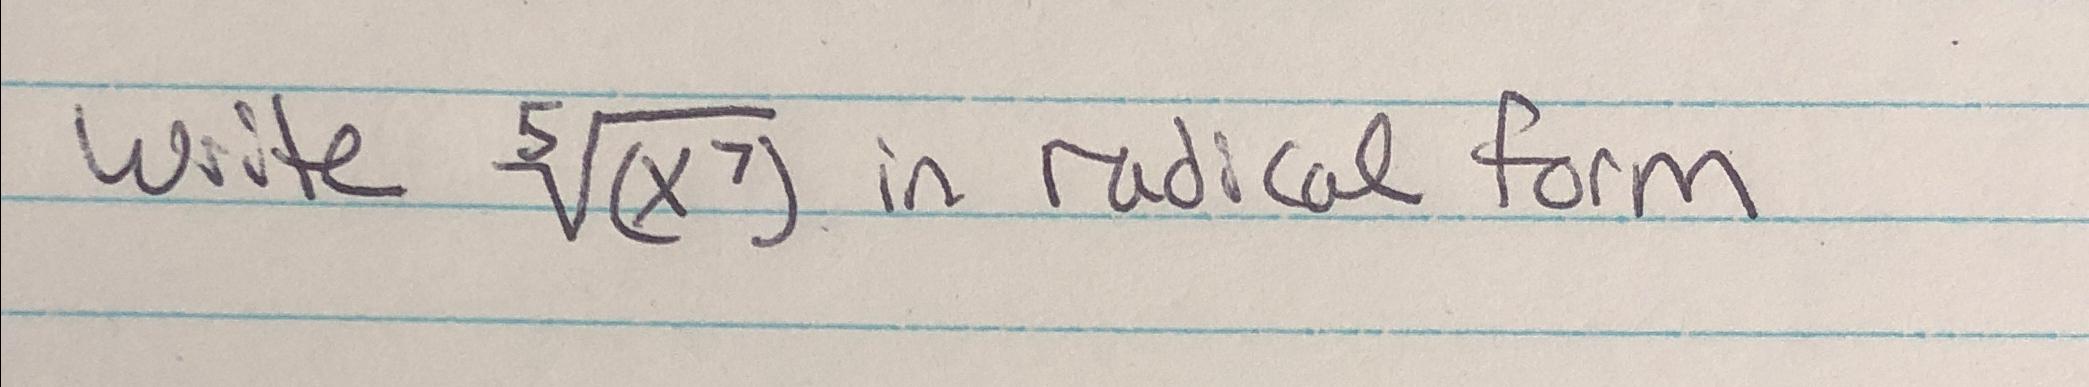 Write ⁵√(x⁷) in radical form